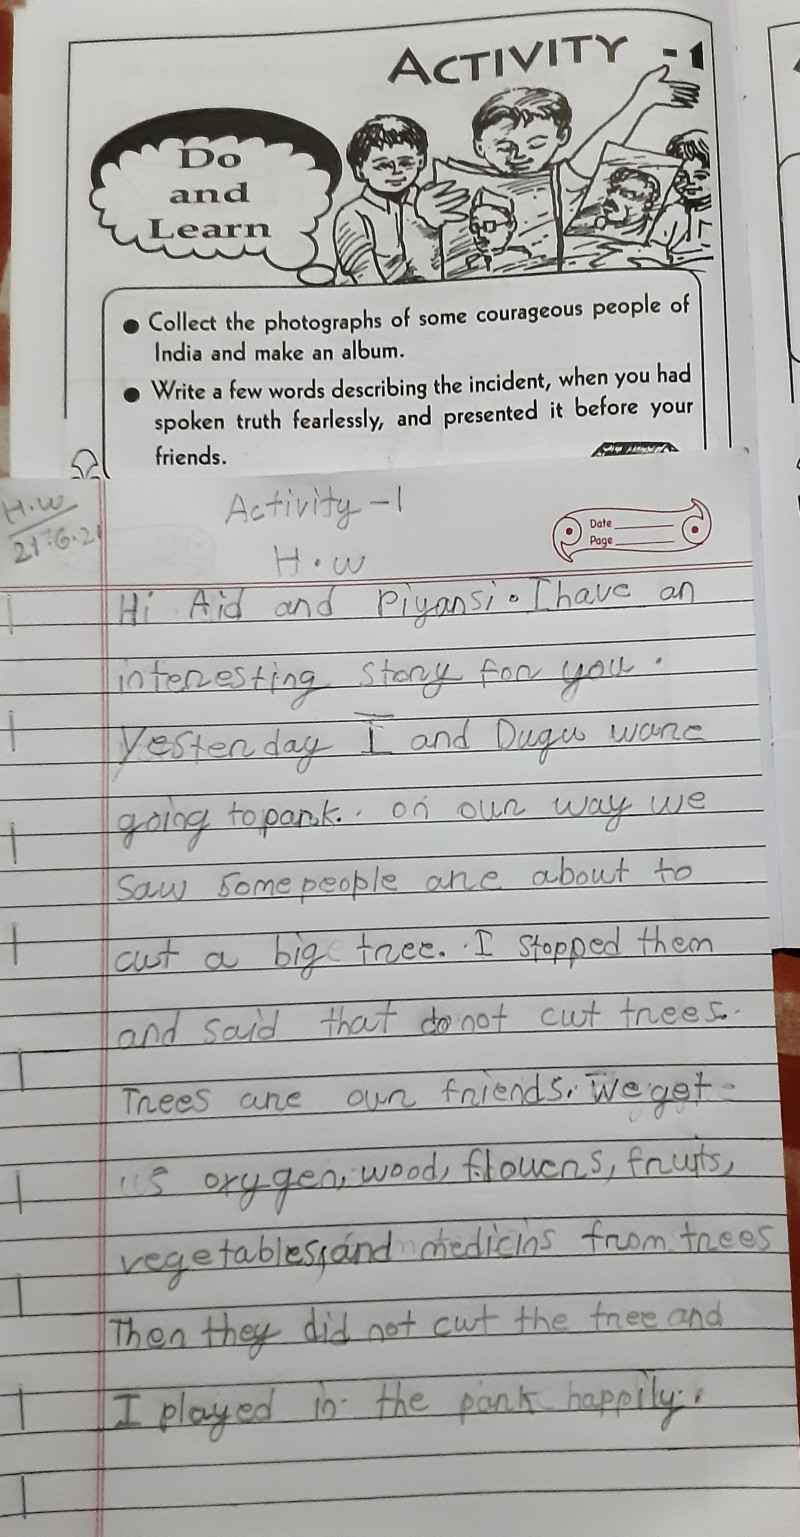 ACTIVITY - 1
Do
and
Learn
● Collect the photographs of some courageous people of
India and make an album.
● Write a few words describing the incident, when you had
spoken truth fearlessly, and presented it before your
friends.
H.W
21.6.21
Activity -1
H.W
Date
Page
Hi Aid and Piyansi. I have an
interesting story for you.
Yesterday I and Dugu ware
going to park. on our way we
Saw some people are about to
cut a big tree. I stopped them
and said that do not cut trees.
Trees are our friends. We get
us oxygen, wood, flouers, fruits,
vegetables, and medicins from trees
Then they did not cut the tree and
I played in the park happily.